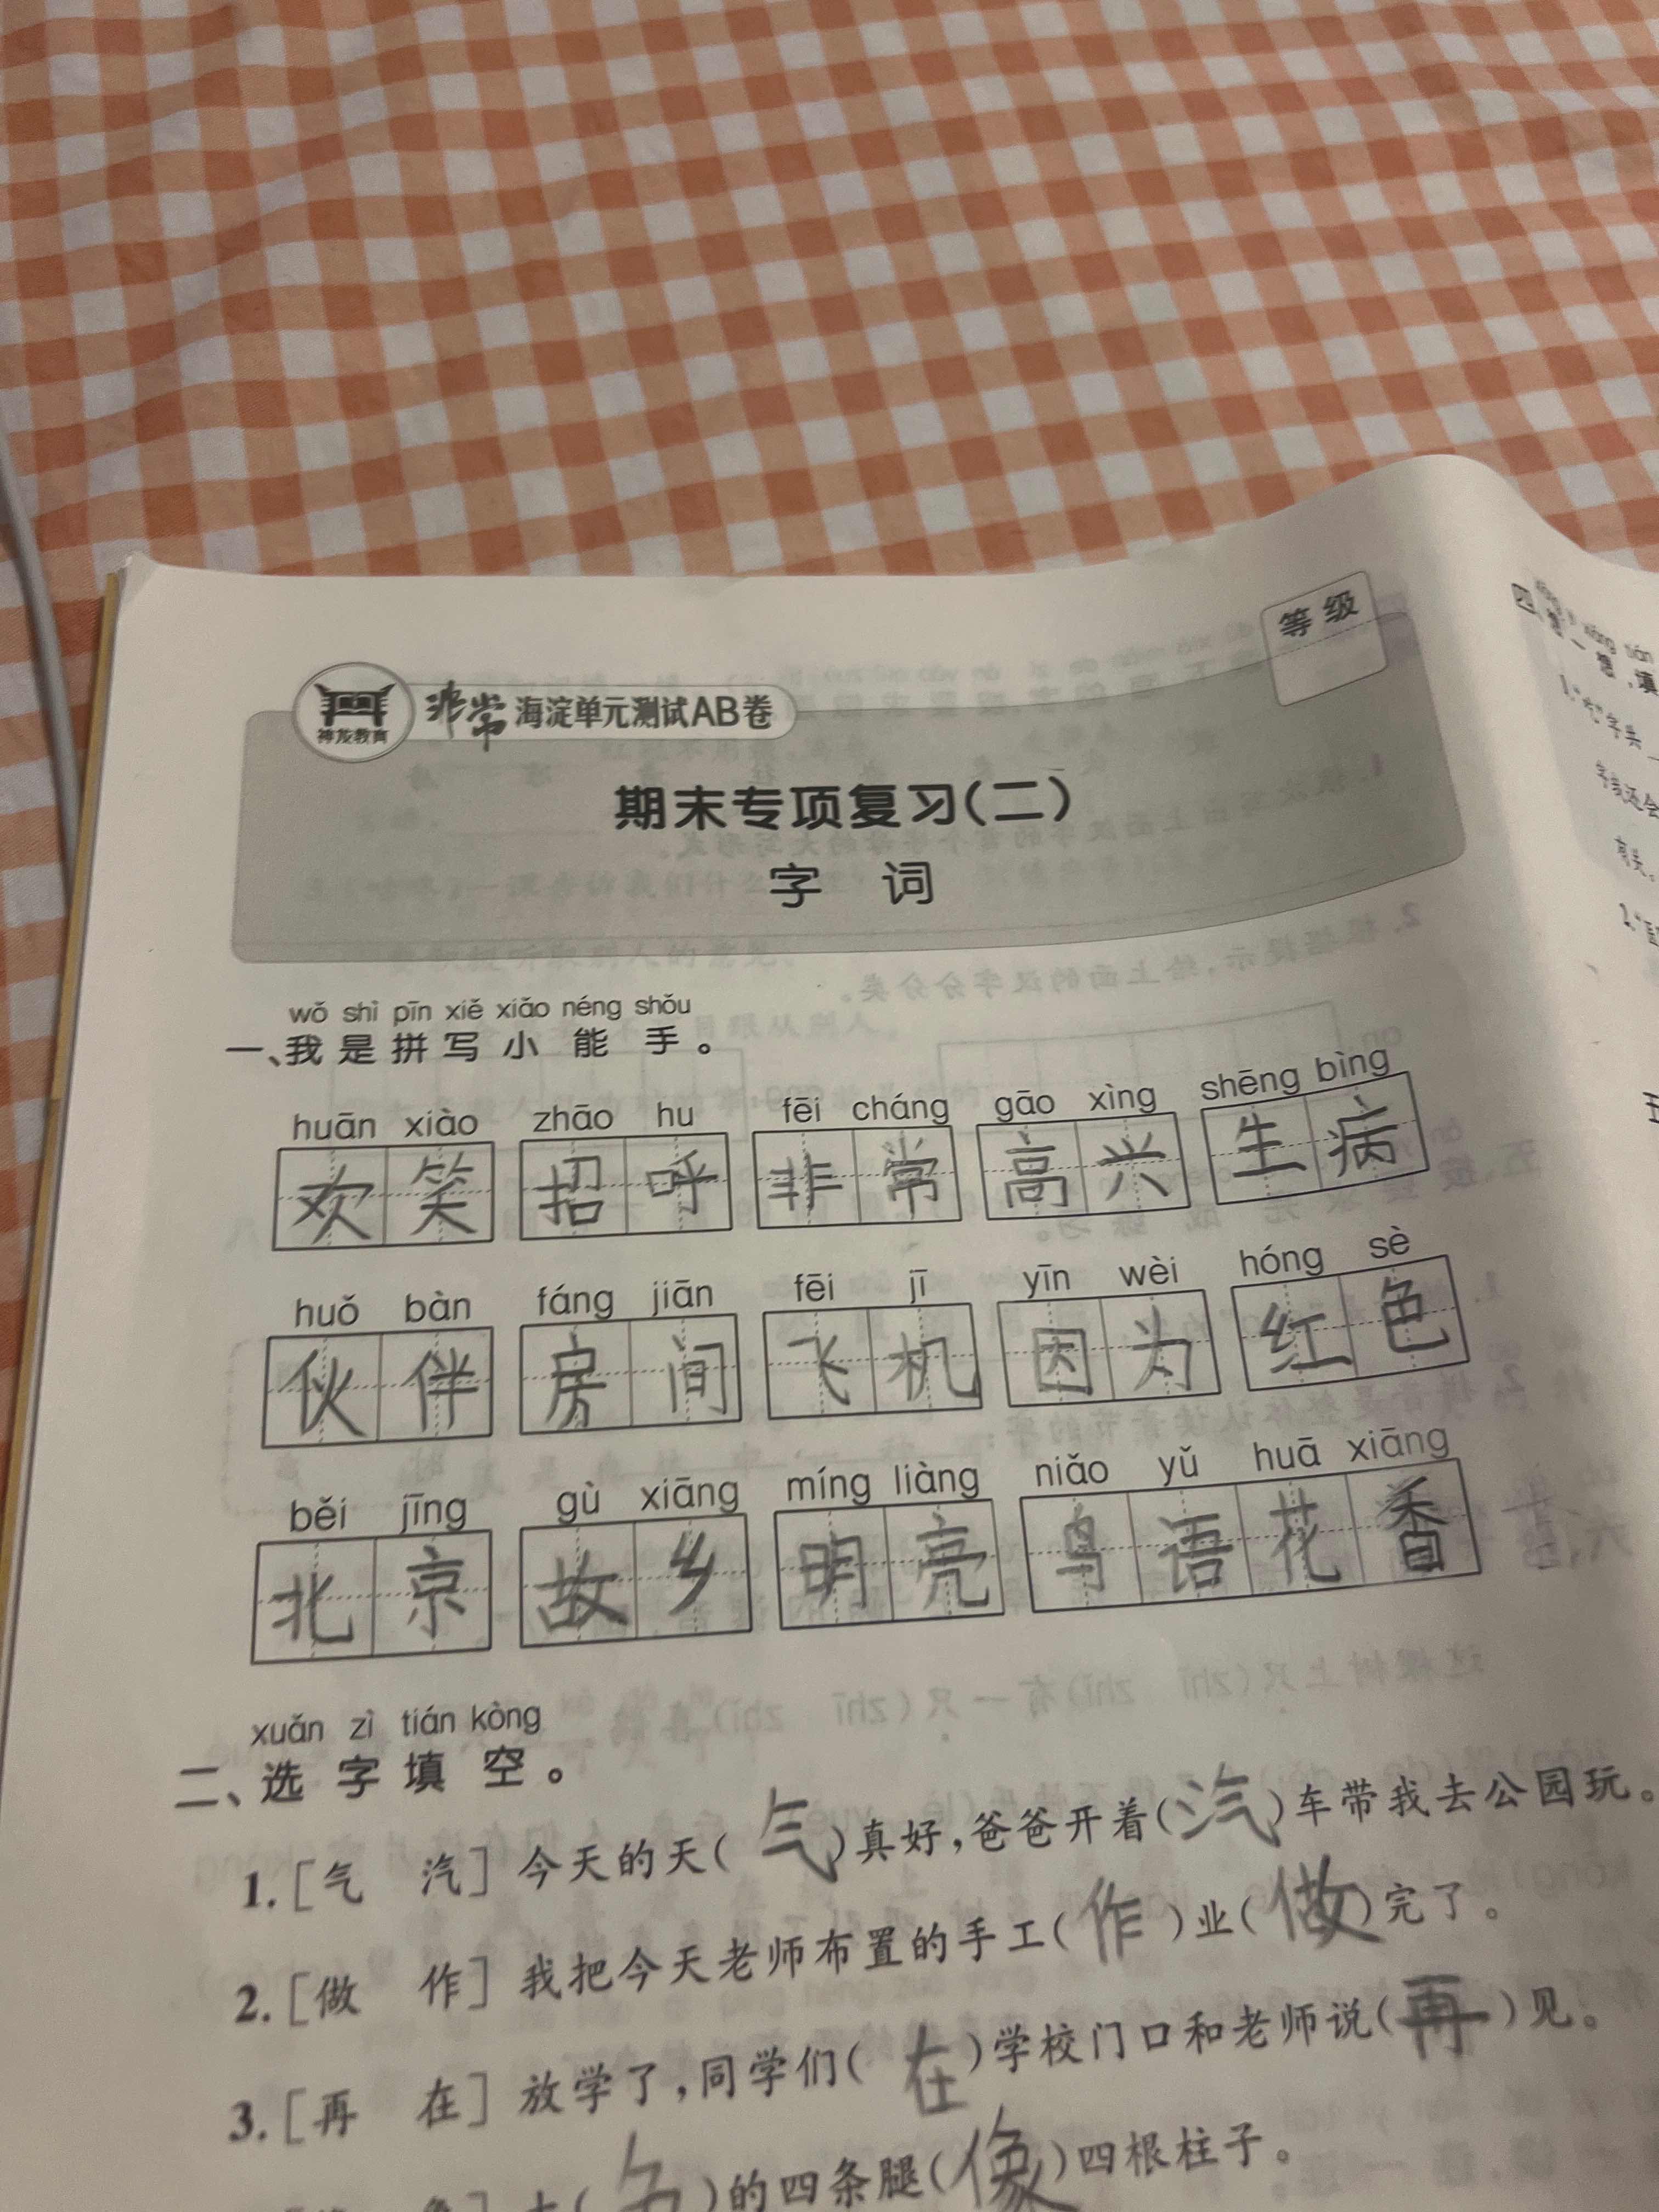 等级
神龙教育 非常 海淀单元测试AB卷
期末专项复习(二)
字 词
wǒ shì pīn xiě xiǎo néng shǒu
一、我是拼写小能手。
huān xiào zhāo hu fēi cháng gāo xìng shēng bìng
欢笑 招呼 非常 高兴 生病
huǒ bàn fáng jiān fēi jī yīn wèi hóng sè
伙伴 房间 飞机 因为 红色
běi jīng gù xiāng míng liàng niǎo yǔ huā xiāng
北京 故乡 明亮 鸟语花香
xuǎn zì tián kòng
二、选字填空。
1.[气 汽] 今天的天(气)真好,爸爸开着(汽)车带我去公园玩。
2.[做 作] 我把今天老师布置的手工(作)业(做)完了。
3.[再 在] 放学了,同学们(在)学校门口和老师说(再)见。
)的四条腿(像)四根柱子。
xiǎng tián
想 填
1."
字头
字族还会
有关。
2."